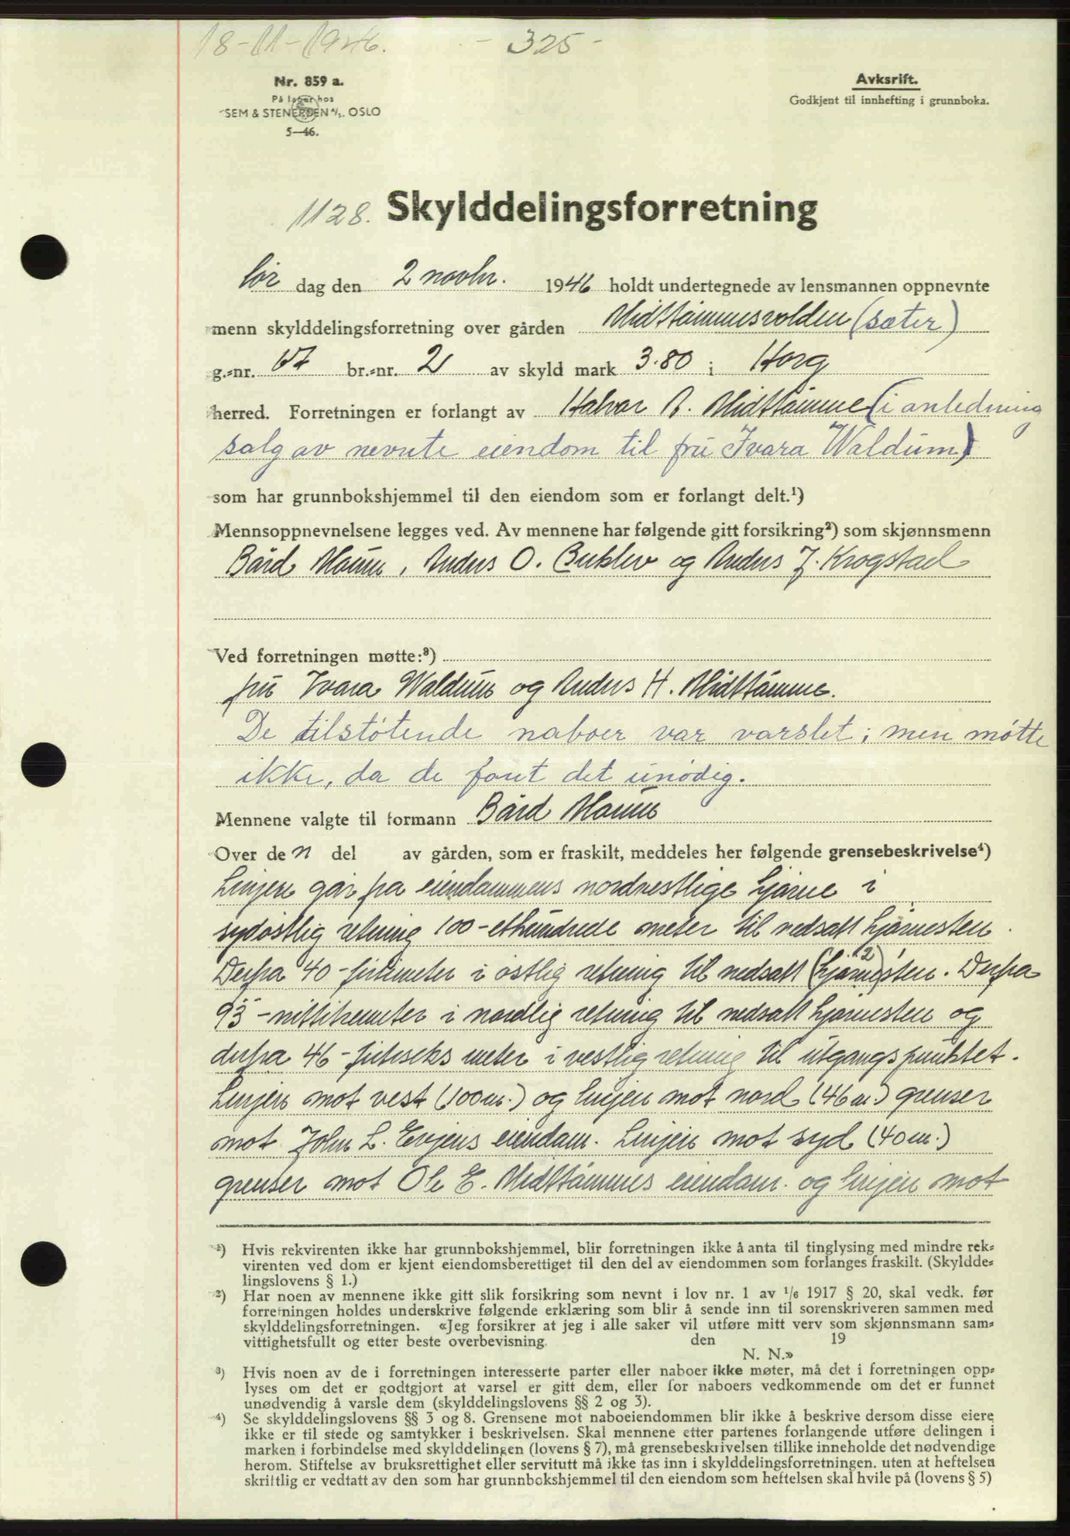 18-11-1946. - 325 -
Nr. 859 a.
På lager hos
SEM & STENERSEN A/S. OSLO
5—46.
Avskrift.
Godkjent til innhefting i grunnboka.
1128. Skylddelingsforretning
lør dag den 2 novbr. 1946 holdt undertegnede av lensmannen oppnevnte
menn skylddelingsforretning over gården Midttømmesvolden (sæter)
g.-nr. 67 br.-nr. 2 av skyld mark 3.80 i Horg
herred. Forretningen er forlangt av Halvor A. Midttømme (i anledning
salg av nevnte eiendom til fru Ivara Waldum)
som har grunnbokshjemmel til den eiendom som er forlangt delt.¹)
Mennsoppnevnelsene legges ved. Av mennene har følgende gitt forsikring²) som skjønnsmenn
Bård Moum, Anders O. Buklev og Anders J. Krogstad
Ved forretningen møtte:³)
fru Ivara Waldum og Anders H. Midttømme.
De tilstøtende naboer var varslet; men møtte
ikke, da de fant det unødig.
Mennene valgte til formann Bård Moum
Over den del av gården, som er fraskilt, meddeles her følgende grensebeskrivelse⁴)
Linjen går fra eiendommens nordvestlige hjørne i
sydøstlig retning 100-ethundrede meter til nedsatt hjørnesten.
Derfra 40-førtimeter i østlig retning til nedsatt (hjørne)²sten. Derfra
93-nittitremeter i nordlig retning til nedsatt hjørnesten og
derfra 46-førtiseks meter i vestlig retning til utgangspunktet.
Linjen mot vest (100m.) og linjen mot nord (46m.) grenser
mot John L. Evjens eiendom. Linjen mot syd (40m.)
grenser mot Ole E. Midttømmes eiendom. og linjen mot
¹) Hvis rekvirenten ikke har grunnbokshjemmel, blir forretningen ikke å anta til tinglysing med mindre rek-
virenten ved dom er kjent eiendomsberettiget til den del av eiendommen som forlanges fraskilt. (Skyldde-
lingslovens § 1.)
²) Har noen av mennene ikke gitt slik forsikring som nevnt i lov nr. 1 av 1/6 1917 § 20, skal vedk. før
forretningen holdes underskrive følgende erklæring som blir å sende inn til sorenskriveren sammen med
skylddelingsforretningen. «Jeg forsikrer at jeg i alle saker vil utføre mitt verv som skjønnsmann sam-
vittighetsfullt og etter beste overbevisning. den 19
N. N.»
³) Hvis noen av de i forretningen interesserte parter eller naboer ikke møter, må det i forretningen opp-
lyses om det er godtgjort at varsel er gitt dem, eller for naboers vedkommende om det er funnet
unødvendig å varsle dem (skylddelingslovens §§ 2 og 3).
⁴) Se skylddelingslovens §§ 3 og 8. Grensene mot naboeiendommen blir ikke å beskrive dersom disse eiere
ikke er til stede og samtykker i beskrivelsen. Skal mennene etter partenes forlangende utføre delingen i
marken i forbindelse med skylddelingen (lovens § 7), må grensebeskrivelsen tillike inneholde det nødvendige
herom. Stiftelse av bruksrettighet eller servitutt må ikke tas inn i skylddelingsforretningen, uten at heftelsen
skriftlig er vedtatt av den som har grunnbokshjemmel til den eiendom som heftelsen skal hvile på (lovens § 5)